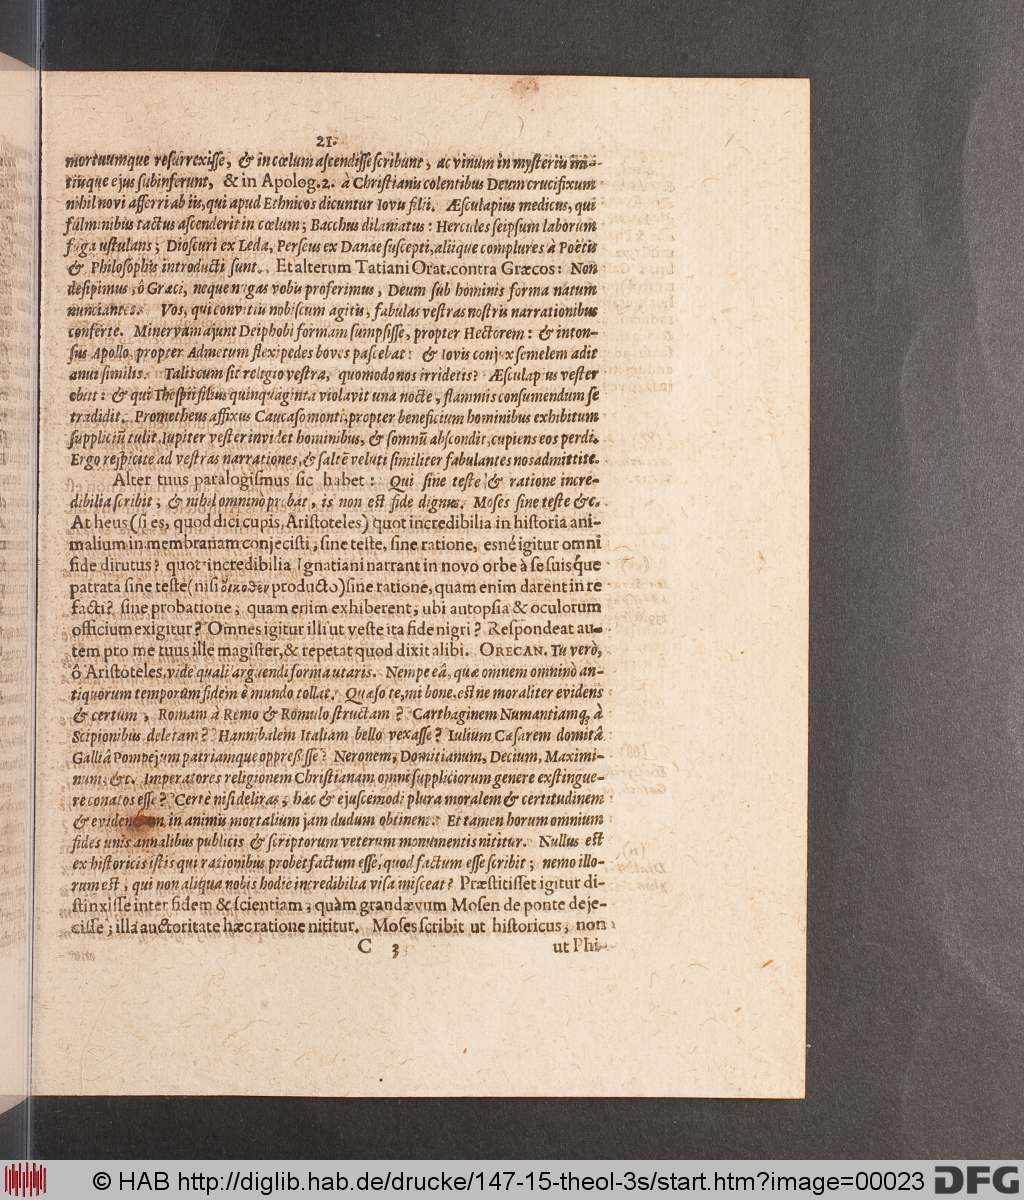 21.
mortuumque resurrexisse, & in cœlum ascendisse scribunt, ac vinum in mysteriũ ini-
tiuque ejus subinferunt, & in Apolog. 2. à Christianis colentibus Deum crucifixum
nihil novi afferri ab iis, qui apud Ethnicos dicuntur Iovis filii. Æsculapius medicus, qui
fulminibus tactus ascenderit in cœlum; Bacchus dilaniatus: Hercules seipsum laborum
fuga ustulans; Dioscuri ex Leda, Perseus ex Danae suscepti, aliique complures à Poëtis
& Philosophis introducti sunt. Et alterum Tatiani Orat. contra Græcos: Non
desipimus, ô Græci, neque nugas vobis proferimus, Deum sub hominis forma natum
nunciantes. Vos, qui convitiis nobiscum agitis, fabulas vestras nostris narrationibus
conferte. Minervam ajunt Deiphobi formam sumpsisse, propter Hectorem: & inton-
sus Apollo, propter Admetum flexipedes boves pascebat: & Iovis conjux semelem adit
anui similis. Talis cum sit religio vestra, quomodo nos irridetis? Æsculapius vester
obiit: & qui Thespii filias quinquaginta violavit una nocte, flammis consumendum se
tradidit. Prometheus affixus Caucaso monti, propter beneficium hominibus exhibitum
suppliciũ tulit. Iupiter vester invidet hominibus, & somnũ abscondit, cupiens eos perdi.
Ergo respicite ad vestras narrationes, & saltẽ veluti similiter fabulantes nos admittite.
Alter tuus paralogismus sic habet: Qui sine teste & ratione incre-
dibilia scribit, & nihil omninò probat, is non est fide dignus. Moses sine teste &c.
At heus (si es, quod dici cupis, Aristoteles) quot incredibilia in historia ani-
malium in membranam conjecisti, sine teste, sine ratione, esné igitur omni
fide dirutus? quot incredibilia Ignatiani narrant in novo orbe à se suisq́ue
patrata sine teste (nisi οἴκοθεν producto) sine ratione, quam enim darent in re
facti? sine probatione; quam enim exhiberent, ubi autopsia & oculorum
officium exigitur? Omnes igitur illi ut veste ita fide nigri? Respondeat au-
tem pro me tuus ille magister, & repetat quod dixit alibi. ORECAN. Tu verò,
ô Aristoteles, vide quali arguendi forma utaris. Nempe eâ, quæ omnem omninò an-
tiquorum temporum fidem è mundo tollat. Quæso te, mi bone, est ne moraliter evidens
& certum, Romam à Remo & Romulo structam? Carthaginem Numantiamq; à
Scipionibus deletam? Hannibalem Italiam bello vexasse? Iulium Cæsarem domitâ
Galliâ Pompejum patriamque oppressisse? Neronem, Domitianum, Decium, Maximi-
num, &c. Imperatores religionem Christianam omni suppliciorum genere exstingue-
re conatos esse? Certè nisi deliras, hæc & ejuscemodi plura moralem & certitudinem
& evidentiam in animis mortalium jam dudum obtinent. Et tamen horum omnium
fides unis annalibus publicis & scriptorum veterum monumentis nititur. Nullus est
ex historicis istis qui rationibus probet factum esse, quod factum esse scribit; nemo illo-
rum est, qui non aliqua nobis hodie incredibilia visa misceat? Præstitisset igitur di-
stinxisse inter fidem & scientiam; quàm grandævum Mosen de ponte deje-
cisse; illa auctoritate hæc ratione nititur. Moses scribit ut historicus, non
C 3 ut Phi-
© HAB http://diglib.hab.de/drucke/147-15-theol-3s/start.htm?image=00023 DFG